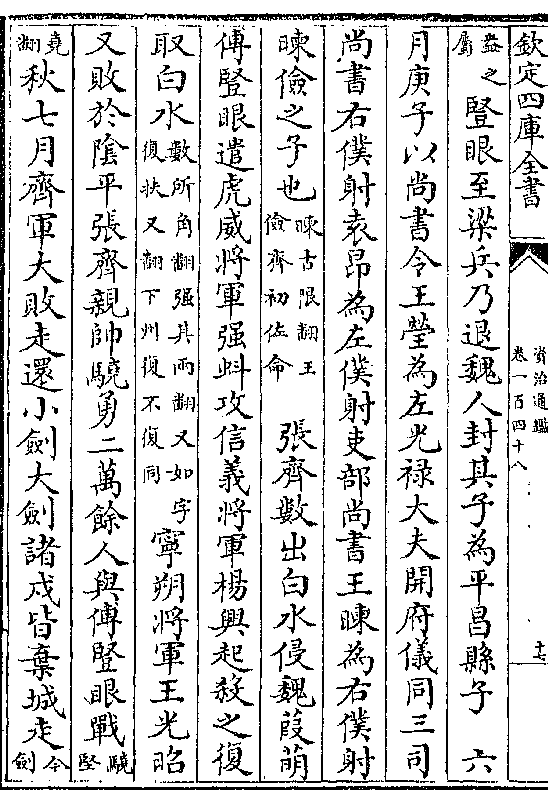 欽定四庫全書
資治通鑑
卷一百四十八
十七
蠡之
屬
豎眼至梁兵乃退魏人封其子為平昌縣子　六
月庚子以尚書令王瑩為左光禄大夫開府儀同三司
尚書右僕射袁昂為左僕射吏部尚書王暕為右僕射
暕儉之子也
暕古限翻王
儉齊初佐命
張齊數出白水侵魏葭萌
傅豎眼遣虎威將軍强虯攻信義將軍楊興起殺之復
取白水
數所角翻强其兩翻又如字
復扶又翻下州復不復同
寧朔將軍王光昭
又敗於陰平張齊親帥驍勇二萬餘人與傅豎眼戰
驍
堅
堯
翻
秋七月齊軍大敗走還小劍大劍諸戍皆棄城走
今
劍